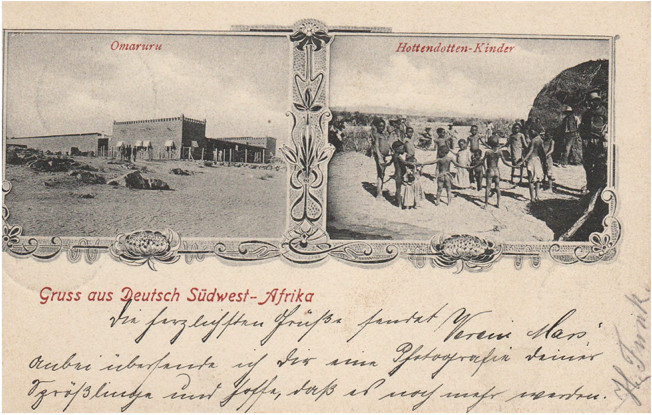 Omaruru
Hottendotten-Kinder
Gruss aus Deutsch Südwest-Afrika
Die herzlichsten Grüße sendet Verein Mars
Anbei übersende ich Dir eine Photografie deiner
Sprößlinge und hoffe, daß es noch mehr werden.